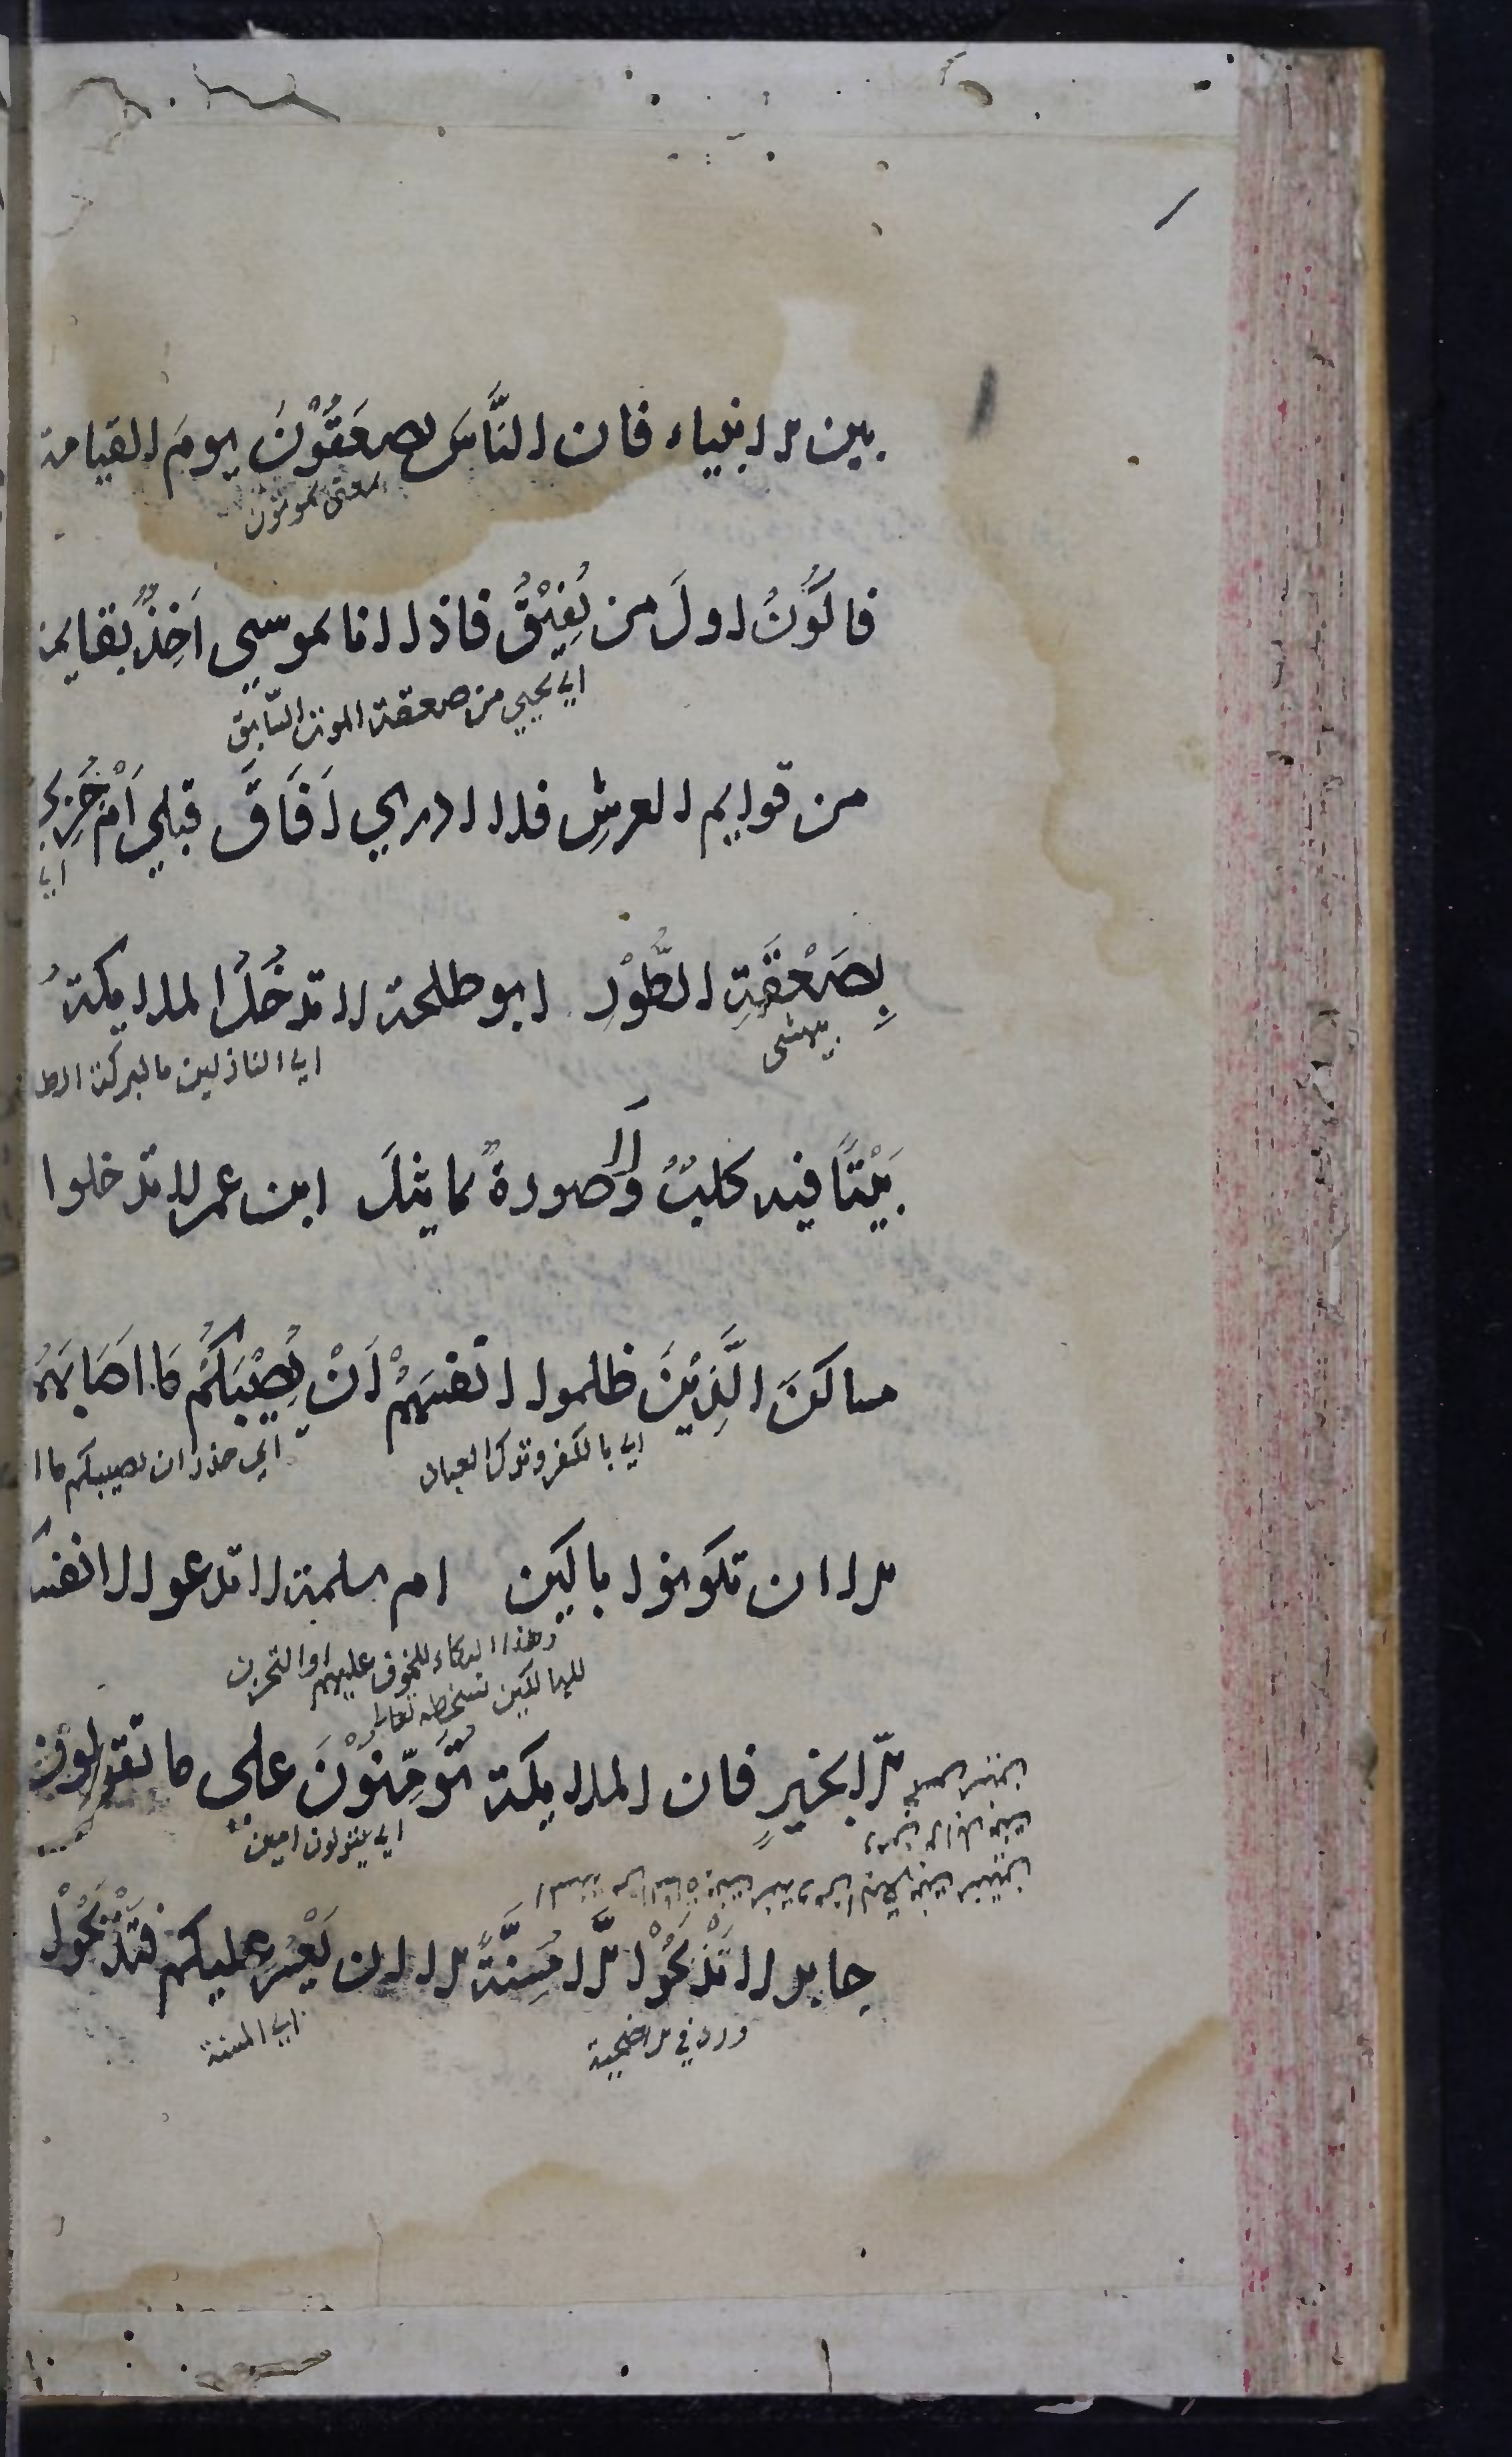 بين الانبياء فان النَّاسَ يصعَقُوْنَ يومَ القيامة
بمعنى يموتون
فاكوُنُ اولَ من يُفِيْقُ فاذا انا بموسي اَخِذٌ بقايمة
اي يحيي من صعقة الموت السّابق
من قوايم العرشِ فلا ادري اَفَاقَ قبلي اَمْ جُزِيَ
اي
بِصَعْقَةِ الطُّوْرِ ابو طلحة لا تدخُلُ الملايكةُ
بيهشى
اي النازلين بالبركة
بَيْتًا فيه كلبٌ وَلا صورةٌ تماثيلَ ابن عمر لا تدخلوا
مساكنَ الَّذِيْنَ ظلموا انفسَهُمْ اَنْ يُصِيْبَكُمْ مَا اَصَابَهُمْ
اي بالكفر وترك العباد
اي حذر ان يصيبكم ما ا
الا ان تكونوا باكين ام سلمة لا تدعوا انفسكم
وهذا البكاء للخوف عليهم او التحزن
للهالكين بسخطه تعالى
الّا بخيرٍ فان الملايكة تُؤَمِّنُوْنَ علي ما تقولون
اي يقولون امين
جابر لا تَذْبَحُوْا الَّا مُسِنَّةً الا ان يَعْسُرَ عليكم فَتَذْبَحُوْا
ورد في الاضحية
اي المسنة